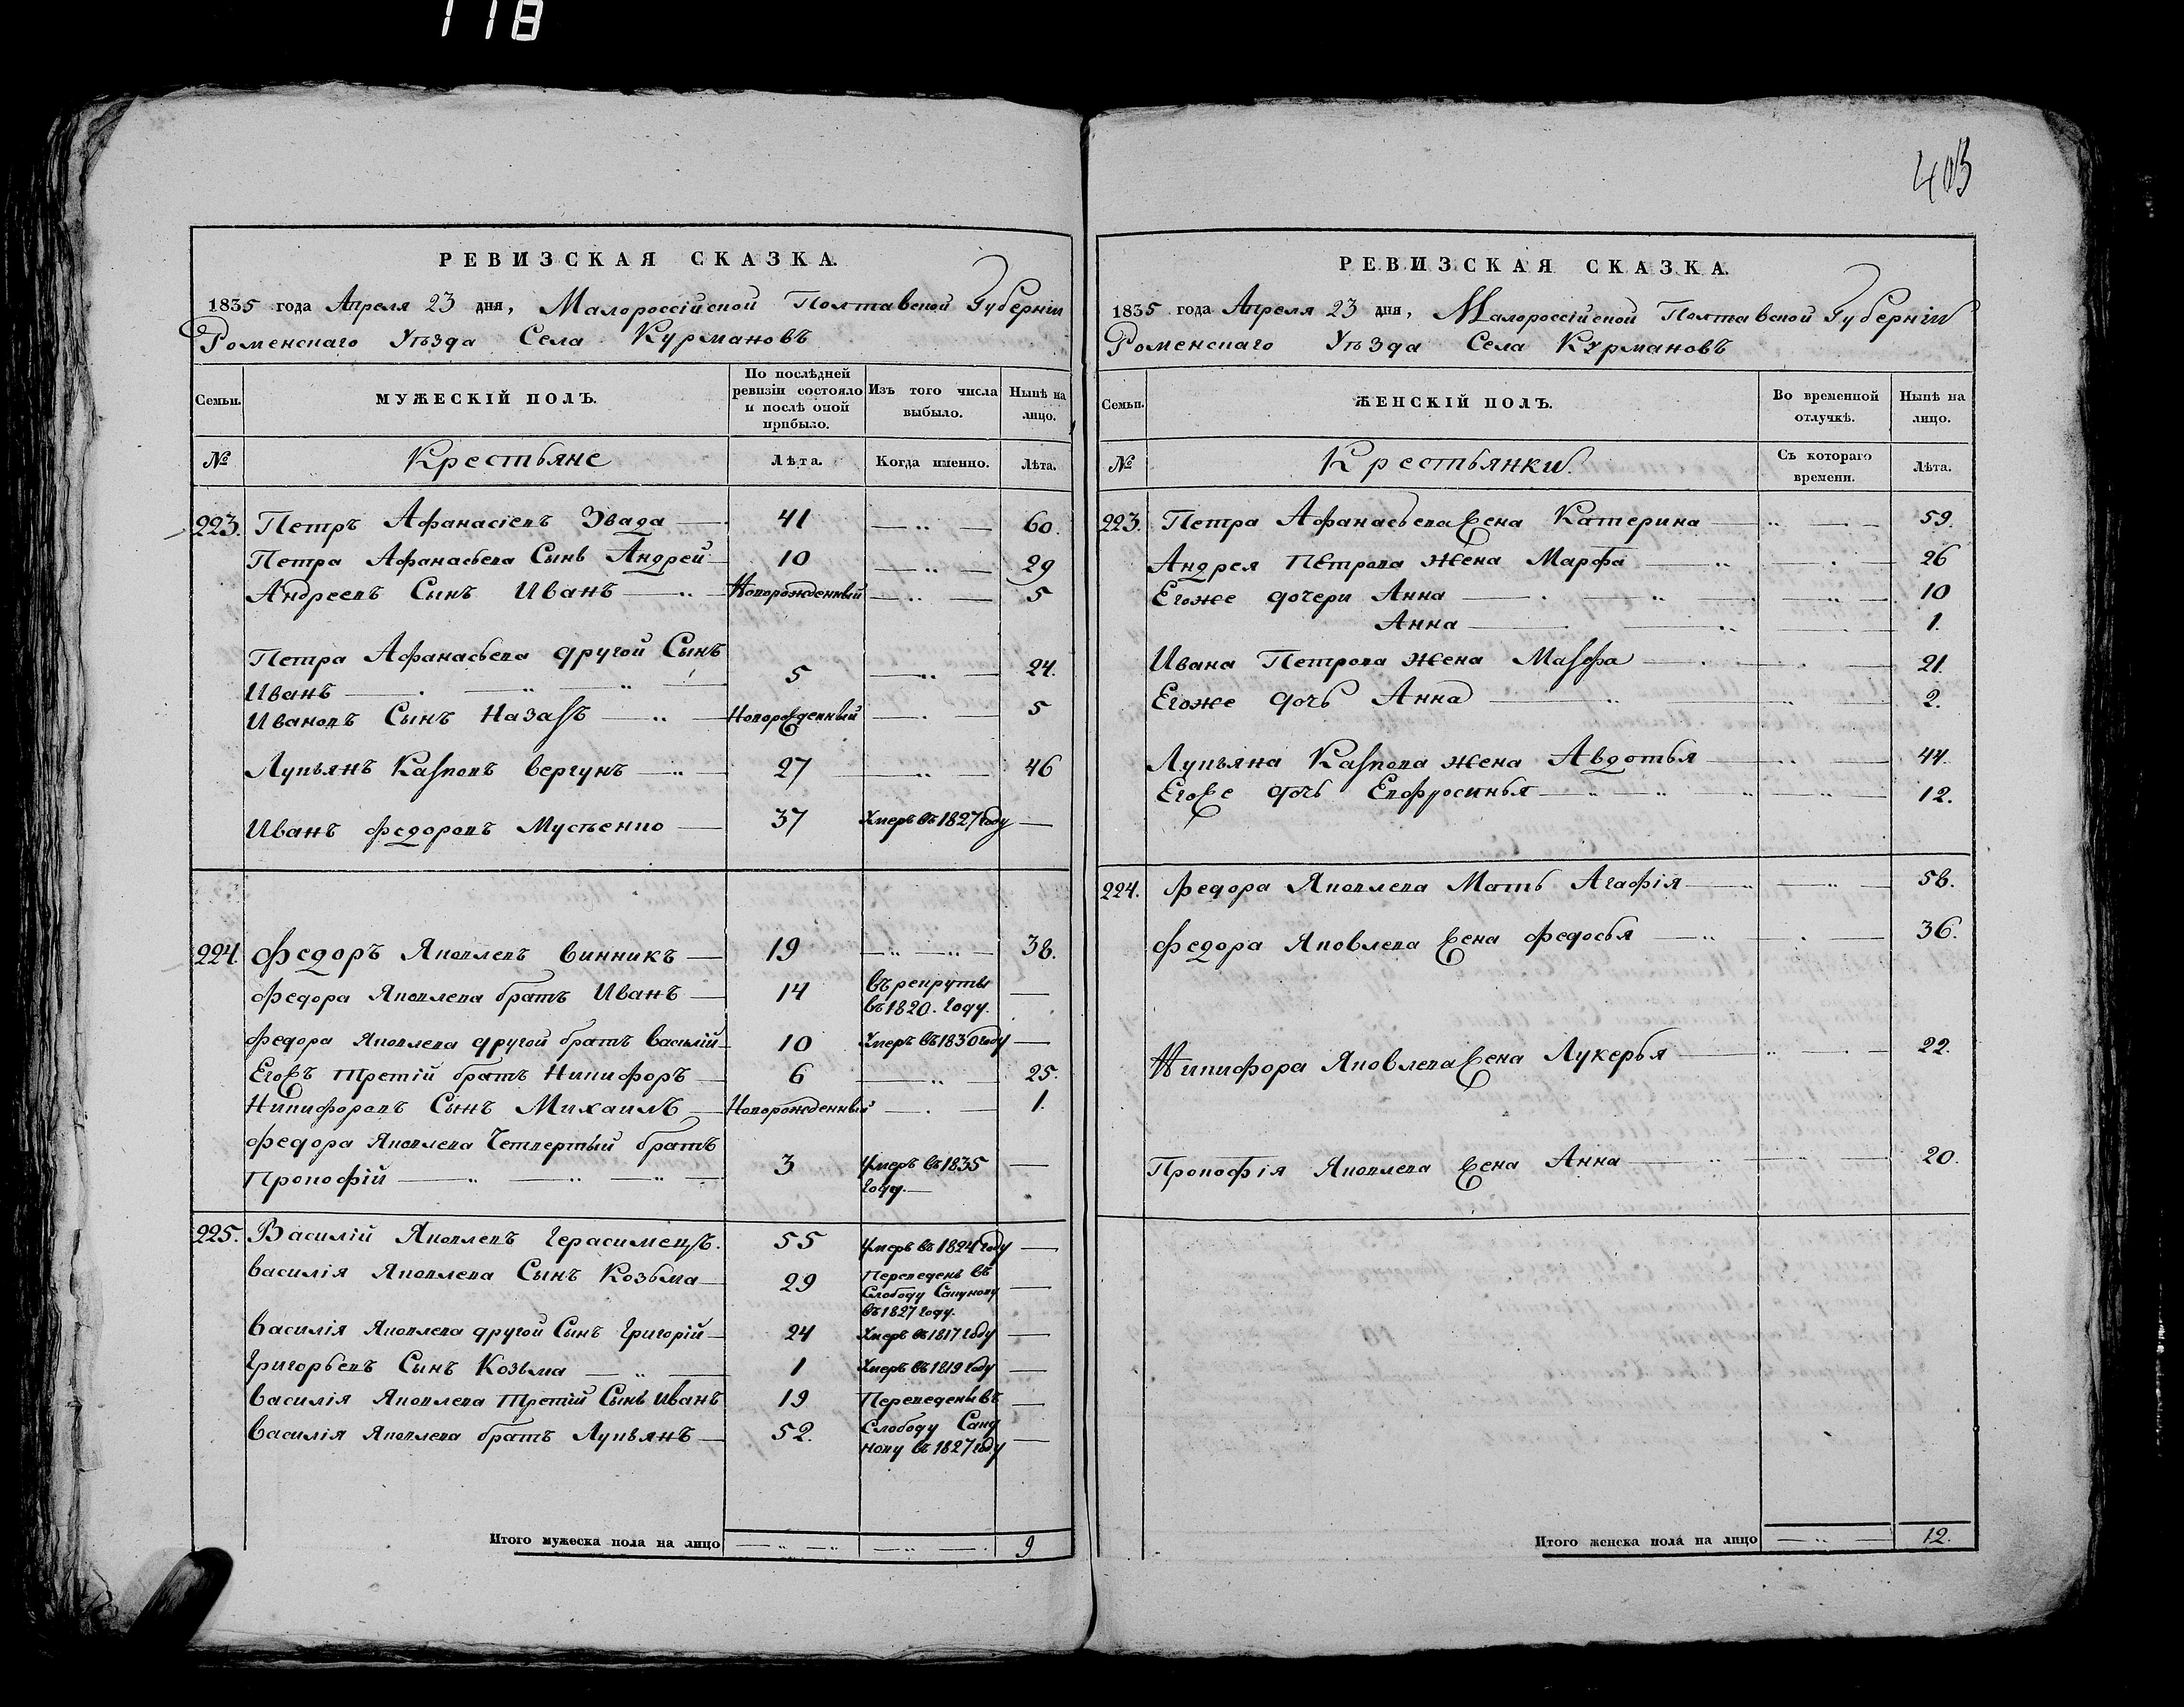 118
403
РЕВИЗСКАЯ СКАЗКА.
1835 года Апреля 23 дня, Малороссійской Полтавской Губерніи
Роменскаго Уѣзда Села Курмановъ
Семьи.
МУЖЕСКІЙ ПОЛЪ.
По послѣдней ревизіи состояло и послѣ оной прибыло.
Изъ того числа выбыло.
Нынѣ на лицо.
№ Крестьяне Лѣта. Когда именно. Лѣта.
223. Петръ Афанасіевъ Звада 41 60.
Петра Афанасьева Сынъ Андрей 10 29
Андреевъ Сынъ Иванъ Новорожденный 5
Петра Афанасьева другой Сынъ
Иванъ 5 24.
Ивановъ Сынъ Назаръ Новорожденный 5
Лукьянъ Карповъ Вергунъ 27 46
Иванъ Федоровъ Мусіенко 37 Умеръ въ 1827 году
224. Федоръ Яковлевъ Винникъ 19 38.
Федора Яковлева братъ Иванъ 14 Въ рекруты
въ 1820. году.
Федора Яковлева другой братъ Василій 10 Умеръ въ 1830 году
Егожъ третій братъ Никифоръ 6 25.
Никифоровъ Сынъ Михаилъ Новорожденный 1.
Федора Яковлева Четвертый братъ
Прокофій 3 Умеръ въ 1835
году.
225. Василій Яковлевъ Герасимецъ. 55 Умеръ въ 1824 году
Василія Яковлева Сынъ Козьма 29 Переведенъ въ
Слободу Сакунову
въ 1827 году.
Василія Яковлева другой Сынъ Григорій 24 Умеръ въ 1817 году
Григорьевъ Сынъ Козьма 1 Умеръ въ 1819 году
Василія Яковлева третій Сынъ Иванъ 19 Переведены въ
Василія Яковлева братъ Лукьянъ 52. Слободу Саку
нову въ 1827 году
Итого мужеска пола на лицо 9
РЕВИЗСКАЯ СКАЗКА.
1835 года Апреля 23 дня, Малороссійской Полтавской Губерніи
Роменскаго Уѣзда Села Курмановъ
Семьи.
ЖЕНСКІЙ ПОЛЪ.
Во временной отлучкѣ.
Нынѣ на лицо.
№ Крестьянки. Съ котораго времени. Лѣта.
223. Петра Афанасьева жена Катерина 59.
Андрея Петрова жена Марфа 26
Егоже дочери Анна 10
Анна 1.
Ивана Петрова жена Марфа 21.
Егоже дочь Анна 2.
Лукьяна Карпова жена Авдотья 44.
Егоже дочь Евфросинья 12.
224. Федора Яковлева Мать Агафія 58.
Федора Яковлева жена Федосья 36.
Никифора Яковлева жена Лукерья 22.
Прокофія Яковлева жена Анна 20.
Итого женска пола на лицо 12.